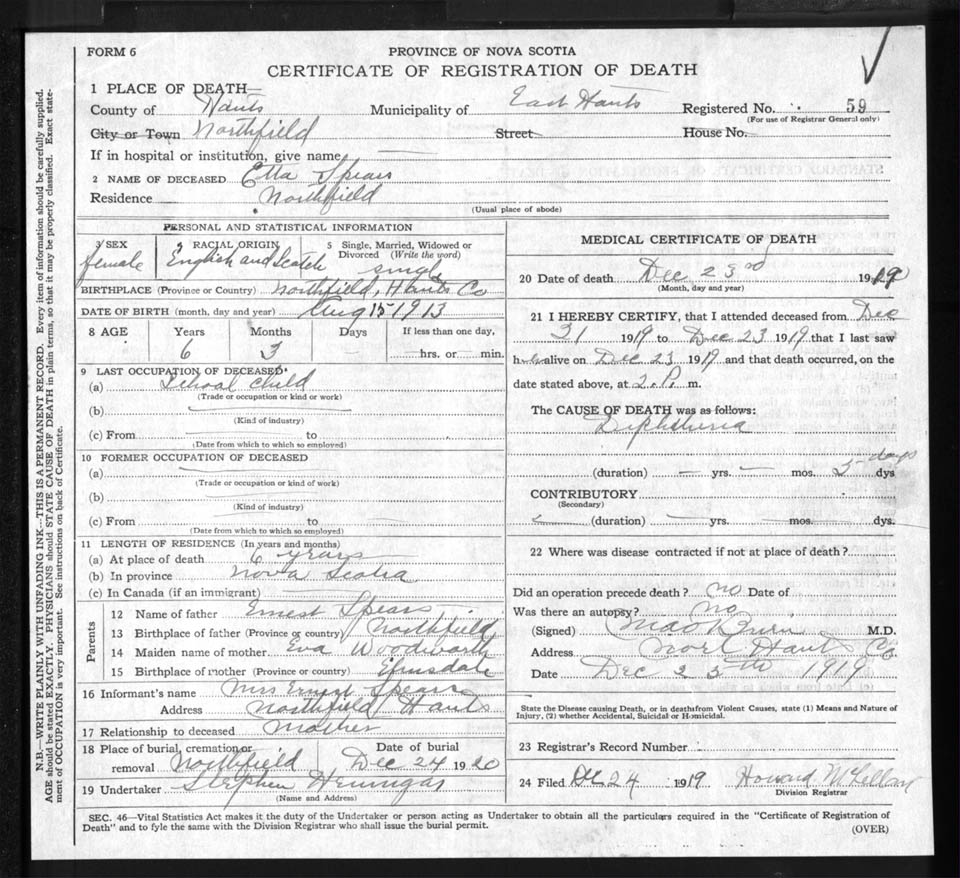 FORM 6
PROVINCE OF NOVA SCOTIA
CERTIFICATE OF REGISTRATION OF DEATH
1 PLACE OF DEATH—
County of Hants Municipality of East Hants Registered No. 59
(For use of Registrar General only)
City or Town Northfield Street House No.
If in hospital or institution, give name
2 NAME OF DECEASED Etta Spears
Residence Northfield
(Usual place of abode)
PERSONAL AND STATISTICAL INFORMATION
3 SEX female
RACIAL ORIGIN English and Scotch
5 Single, Married, Widowed or Divorced (Write the word) single
BIRTHPLACE (Province or Country) Northfield, Hants Co
DATE OF BIRTH (month, day and year) Aug 15 1913
8 AGE Years Months Days If less than one day,
6 3 hrs. or min.
9 LAST OCCUPATION OF DECEASED
(a) School child
(Trade or occupation or kind or work)
(b)
(Kind of industry)
(c) From to
(Date from which to which so employed)
10 FORMER OCCUPATION OF DECEASED
(a)
(Trade or occupation or kind of work)
(b)
(Kind of industry)
(c) From to
(Date from which to which so employed)
11 LENGTH OF RESIDENCE (In years and months)
(a) At place of death 6 years
(b) In province Nova Scotia
(c) In Canada (if an immigrant)
Parents
12 Name of father Ernest Spears
13 Birthplace of father (Province or country) Northfield
14 Maiden name of mother Eva Woodworth
15 Birthplace of mother (Province or country) Elmsdale
16 Informant's name Mrs Ernest Spears
Address Northfield Hants
17 Relationship to deceased Mother
18 Place of burial, cremation or removal Northfield Date of burial Dec 24 1920
19 Undertaker Stephen Hennigar
(Name and Address)
MEDICAL CERTIFICATE OF DEATH
20 Date of death Dec 23rd 1919
(Month, day and year)
21 I HEREBY CERTIFY, that I attended deceased from Dec
21 1919 to Dec 23 1919 that I last saw
her alive on Dec 23 1919 and that death occurred, on the
date stated above, at 2.P. m.
The CAUSE OF DEATH was as follows:
Diphtheria
(duration) yrs. mos. 5 days dys
CONTRIBUTORY
(Secondary)
(duration) yrs. mos. dys.
22 Where was disease contracted if not at place of death?
Did an operation precede death? no Date of
Was there an autopsy? no
(Signed) M.D.
Address Noel Hants Co
Date Dec 25th 1919
State the Disease causing Death, or in deaths from Violent Causes, state (1) Means and Nature of
Injury, (2) whether Accidental, Suicidal or Homicidal.
23 Registrar's Record Number
24 Filed Dec. 24 1919 Howard McLellan
Division Registrar
SEC. 46—Vital Statistics Act makes it the duty of the Undertaker or person acting as Undertaker to obtain all the particulars required in the "Certificate of Registration of
Death" and to fyle the same with the Division Registrar who shall issue the burial permit.
(OVER)
N.B.—WRITE PLAINLY WITH UNFADING INK—THIS IS A PERMANENT RECORD. Every item of information should be carefully supplied.
AGE should be stated EXACTLY. PHYSICIANS should STATE CAUSE OF DEATH in plain terms, so that it may be properly classified. Exact state-
ment of OCCUPATION is very important. See instructions on back of Certificate.